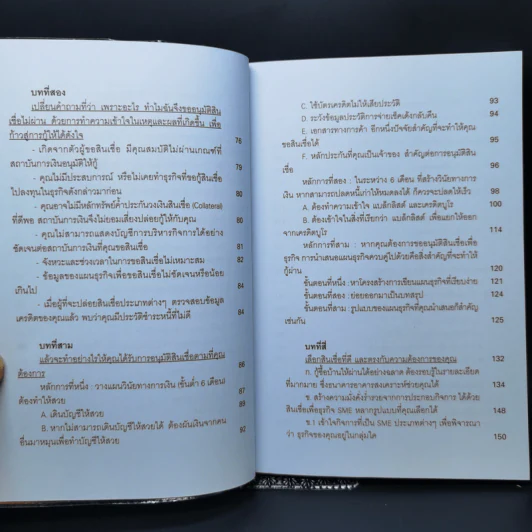 บทที่สอง
เปลี่ยนคำถามที่ว่า เพราะอะไร ทำไมฉันจึงขออนุมัติสิน
เชื่อไม่ผ่าน ด้วยการทำความเข้าใจในเหตุและผลที่เกิดขึ้น เพื่อ
ก้าวสู่การกู้ให้ได้ดังใจ 76
- เกิดจากตัวผู้ขอสินเชื่อ มีคุณสมบัติไม่ผ่านเกณฑ์ที่
สถาบันการเงินอนุมัติให้กู้ 79
- คุณไม่มีประสบการณ์ หรือไม่เคยทำธุรกิจที่ขอกู้สินเชื่อ
ไปลงทุนในธุรกิจดังกล่าวมาก่อน 80
- คุณอาจไม่มีหลักทรัพย์ค้ำประกันวงเงินสินเชื่อ (Collateral)
ที่ดีพอ สถาบันการเงินจึงไม่ยอมเสี่ยงปล่อยกู้ให้กับคุณ 80
- คุณไม่สามารถแสดงบัญชีการบริหารกิจการได้อย่าง
ชัดเจนต่อสถาบันการเงินที่คุณขอสินเชื่อ 81
- จังหวะและช่วงเวลาในการขอสินเชื่อไม่เหมาะสม 82
- ข้อมูลของแผนธุรกิจเพื่อขอสินเชื่อไม่ชัดเจนหรือน้อย
เกินไป 84
- เมื่อผู้ที่จะปล่อยสินเชื่อประเภทต่างๆ ตรวจสอบข้อมูล
เครดิตของคุณแล้ว พบว่าคุณมีประวัติชำระหนี้ที่ไม่ดี 84
บทที่สาม
แล้วจะทำอย่างไรให้คุณได้รับการอนุมัติสินเชื่อตามที่คุณ
ต้องการ 86
หลักการที่หนึ่ง : วางแผนวินัยทางการเงิน (ขั้นต่ำ 6 เดือน)
ต้องทำให้สวย 87
A. เดินบัญชีให้สวย
B. หากไม่สามารถเดินบัญชีให้สวยได้ ต้องผันเงินจากคน
อื่นมาหมุนเพื่อทำบัญชีให้สวย 92
C. ใช้บัตรเครดิตไม่ให้เสียประวัติ 93
D. ระวังข้อมูลประวัติการจ่ายเช็คเด้งกลับคืน 94
E. เอกสารทางการค้า อีกหนึ่งปัจจัยสำคัญที่จะทำให้คุณ
ขอสินเชื่อได้ 95
F. หลักประกันที่คุณเป็นเจ้าของ สำคัญต่อการอนุมัติสิน
เชื่อ
หลักการที่สอง : ในระหว่าง 6 เดือน ที่สร้างวินัยทางการ
เงิน หากสามารถปลดหนี้เก่าให้หมดลงได้ ก็ควรจะปลดให้เร็ว
A. ต้องทำความเข้าใจ แบล็กลิสต์ และเครดิตบูโร 100
B. ต้องเข้าใจในสิ่งที่เรียกว่า แบล็กลิสต์ เพื่อแยกให้ออก
จากเครดิตบูโร 114
หลักการที่สาม : หากคุณต้องการขออนุมัติสินเชื่อเพื่อ
ธุรกิจ การนำเสนอแผนธุรกิจควบคู่ไปด้วยคือสิ่งสำคัญที่จะทำให้
กู้ผ่าน 120
ขั้นตอนที่หนึ่ง : หาโครงสร้างการเขียนแผนธุรกิจที่เรียบง่าย 121
ขั้นตอนที่สอง : ย่อยออกมาเป็นบทสรุป 124
ขั้นตอนที่สาม : รูปแบบของแผนธุรกิจที่คุณนำเสนอก็สำคัญ
เช่นกัน 125
บทที่สี่
เลือกสินเชื่อที่ดี และตรงกับความต้องการของคุณ 132
ก. กู้ซื้อบ้านให้ผ่านได้อย่างฉลาด ต้องรอบรู้ในรายละเอียด
ที่มากมาย ซึ่งธนาคารอาคารสงเคราะห์ช่วยคุณได้ 134
ข. สร้างความมั่งคั่งร่ำรวยจากการประกอบกิจการ ได้ด้วย
สินเชื่อเพื่อธุรกิจ SME หลากรูปแบบที่คุณเลือกได้ 148
ข.1 เข้าใจกิจการที่เป็น SME ประเภทต่างๆ เพื่อพิจารณา
ว่า ธุรกิจของคุณอยู่ในกลุ่มใด 150